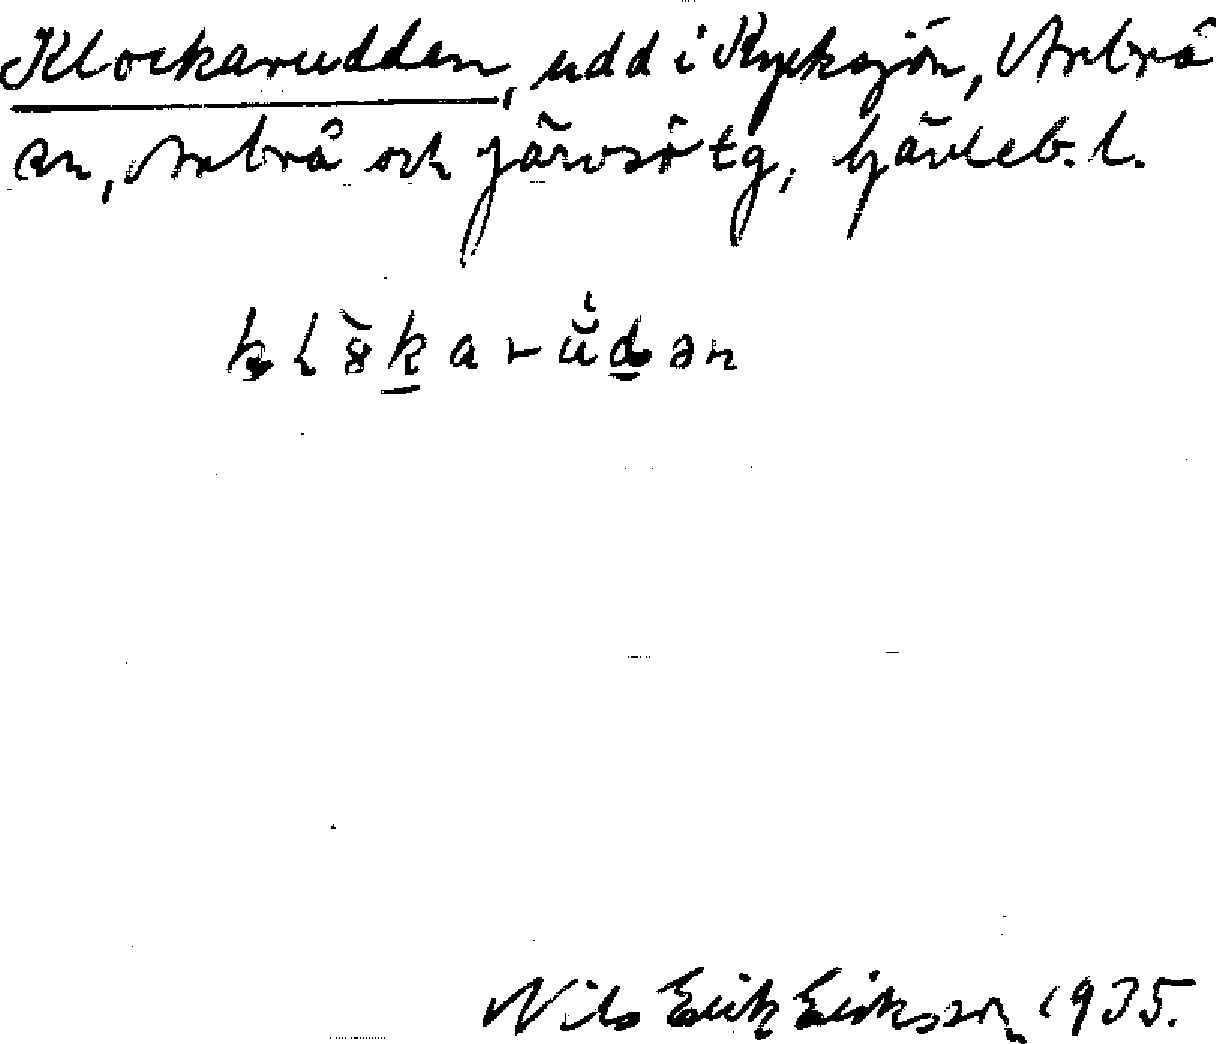 Klockarudden, udd i Kycksjön, Arbrå
sn, Arbrå och Järvsö tg, Gävleb. l.
klòkarùdən
Nils Erik Eriksson 1935.